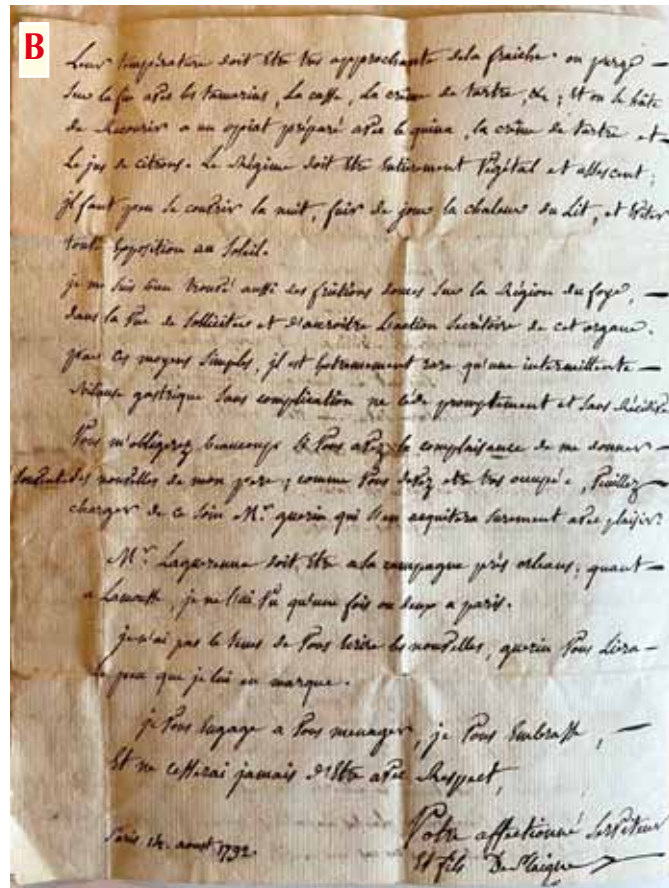 B
Leur température doit etre tres approchante dela fraiche. on purge
Sur la fin avec les tamarins, la casse, la crème de tartre, &c; Et on se hâte
de Recourir a un opiat préparé avec le quina, la crême de tartre et
le jus de citrons. Le Régime doit Etre Entierement Végétal et assescent;
jl faut peu se couvrir la nuit, fuir de jour la chaleur du Lit, et Eviter
toute Exposition au Soleil.
je me suis bien trouvé aussi des frictions douces Sur la Région du foye,
dans la Vue de solliciter et d'accroitre l'action Secrétoire de cet organe.
par ces moyens Simples, jl est Extremement rare qu'une intermittente
bilieuse gastrique Sans complication ne cède promptement et Sans Récidive
Vous m'obligerez beaucoup Si Vous avez la complaisance de me donner
souvent des nouvelles de mon pere; comme Vous devez etre tres occupé, Veuillez
charger de ce soin Mr. querin qui s'en aquitera surement avec plaisir.
Mr. Laguerenne doit Etre ala campagne près orleans; quant
a , je ne l'ai Vu qu'une fois ou deux a paris.
je n'ai pas le tems de Vous Ecrire les nouvelles, querin Vous Lira
le peu que je lui en marque.
je Vous Engage a Vous menager, je Vous Embrasse,
Et ne cesserai jamais d'Etre avec Respect,
Votre affectionné Serviteur
Paris 14. aoust 1792.
Et fils